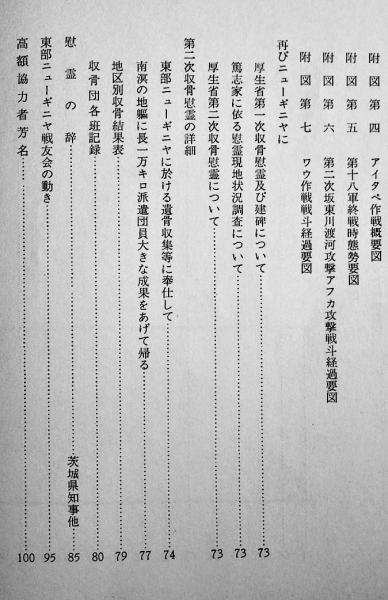 附図第四 アイタペ作戦概要図
附図第五 第十八軍終戦時態勢要図
附図第六 第二次坂東川渡河攻撃アフカ攻撃戦斗経過要図
附図第七 ワウ作戦戦斗経過要図
再びニューギニヤに
厚生省第一次収骨慰霊及び建碑について……………73
篤志家に依る慰霊現地状況調査について……………73
厚生省第二次収骨慰霊について……………73
第二次収骨慰霊の詳細
東部ニューギニヤに於ける遺骨収集等に奉仕して……………74
南溟の地軀に長一万キロ派遣団員大きな成果をあげて帰る……………77
地区別収骨結果表……………79
収骨団各班記録……………80
慰霊の辞……………茨城県知事他……85
東部ニューギニヤ戦友会の動き……………95
高額協力者芳名……………100